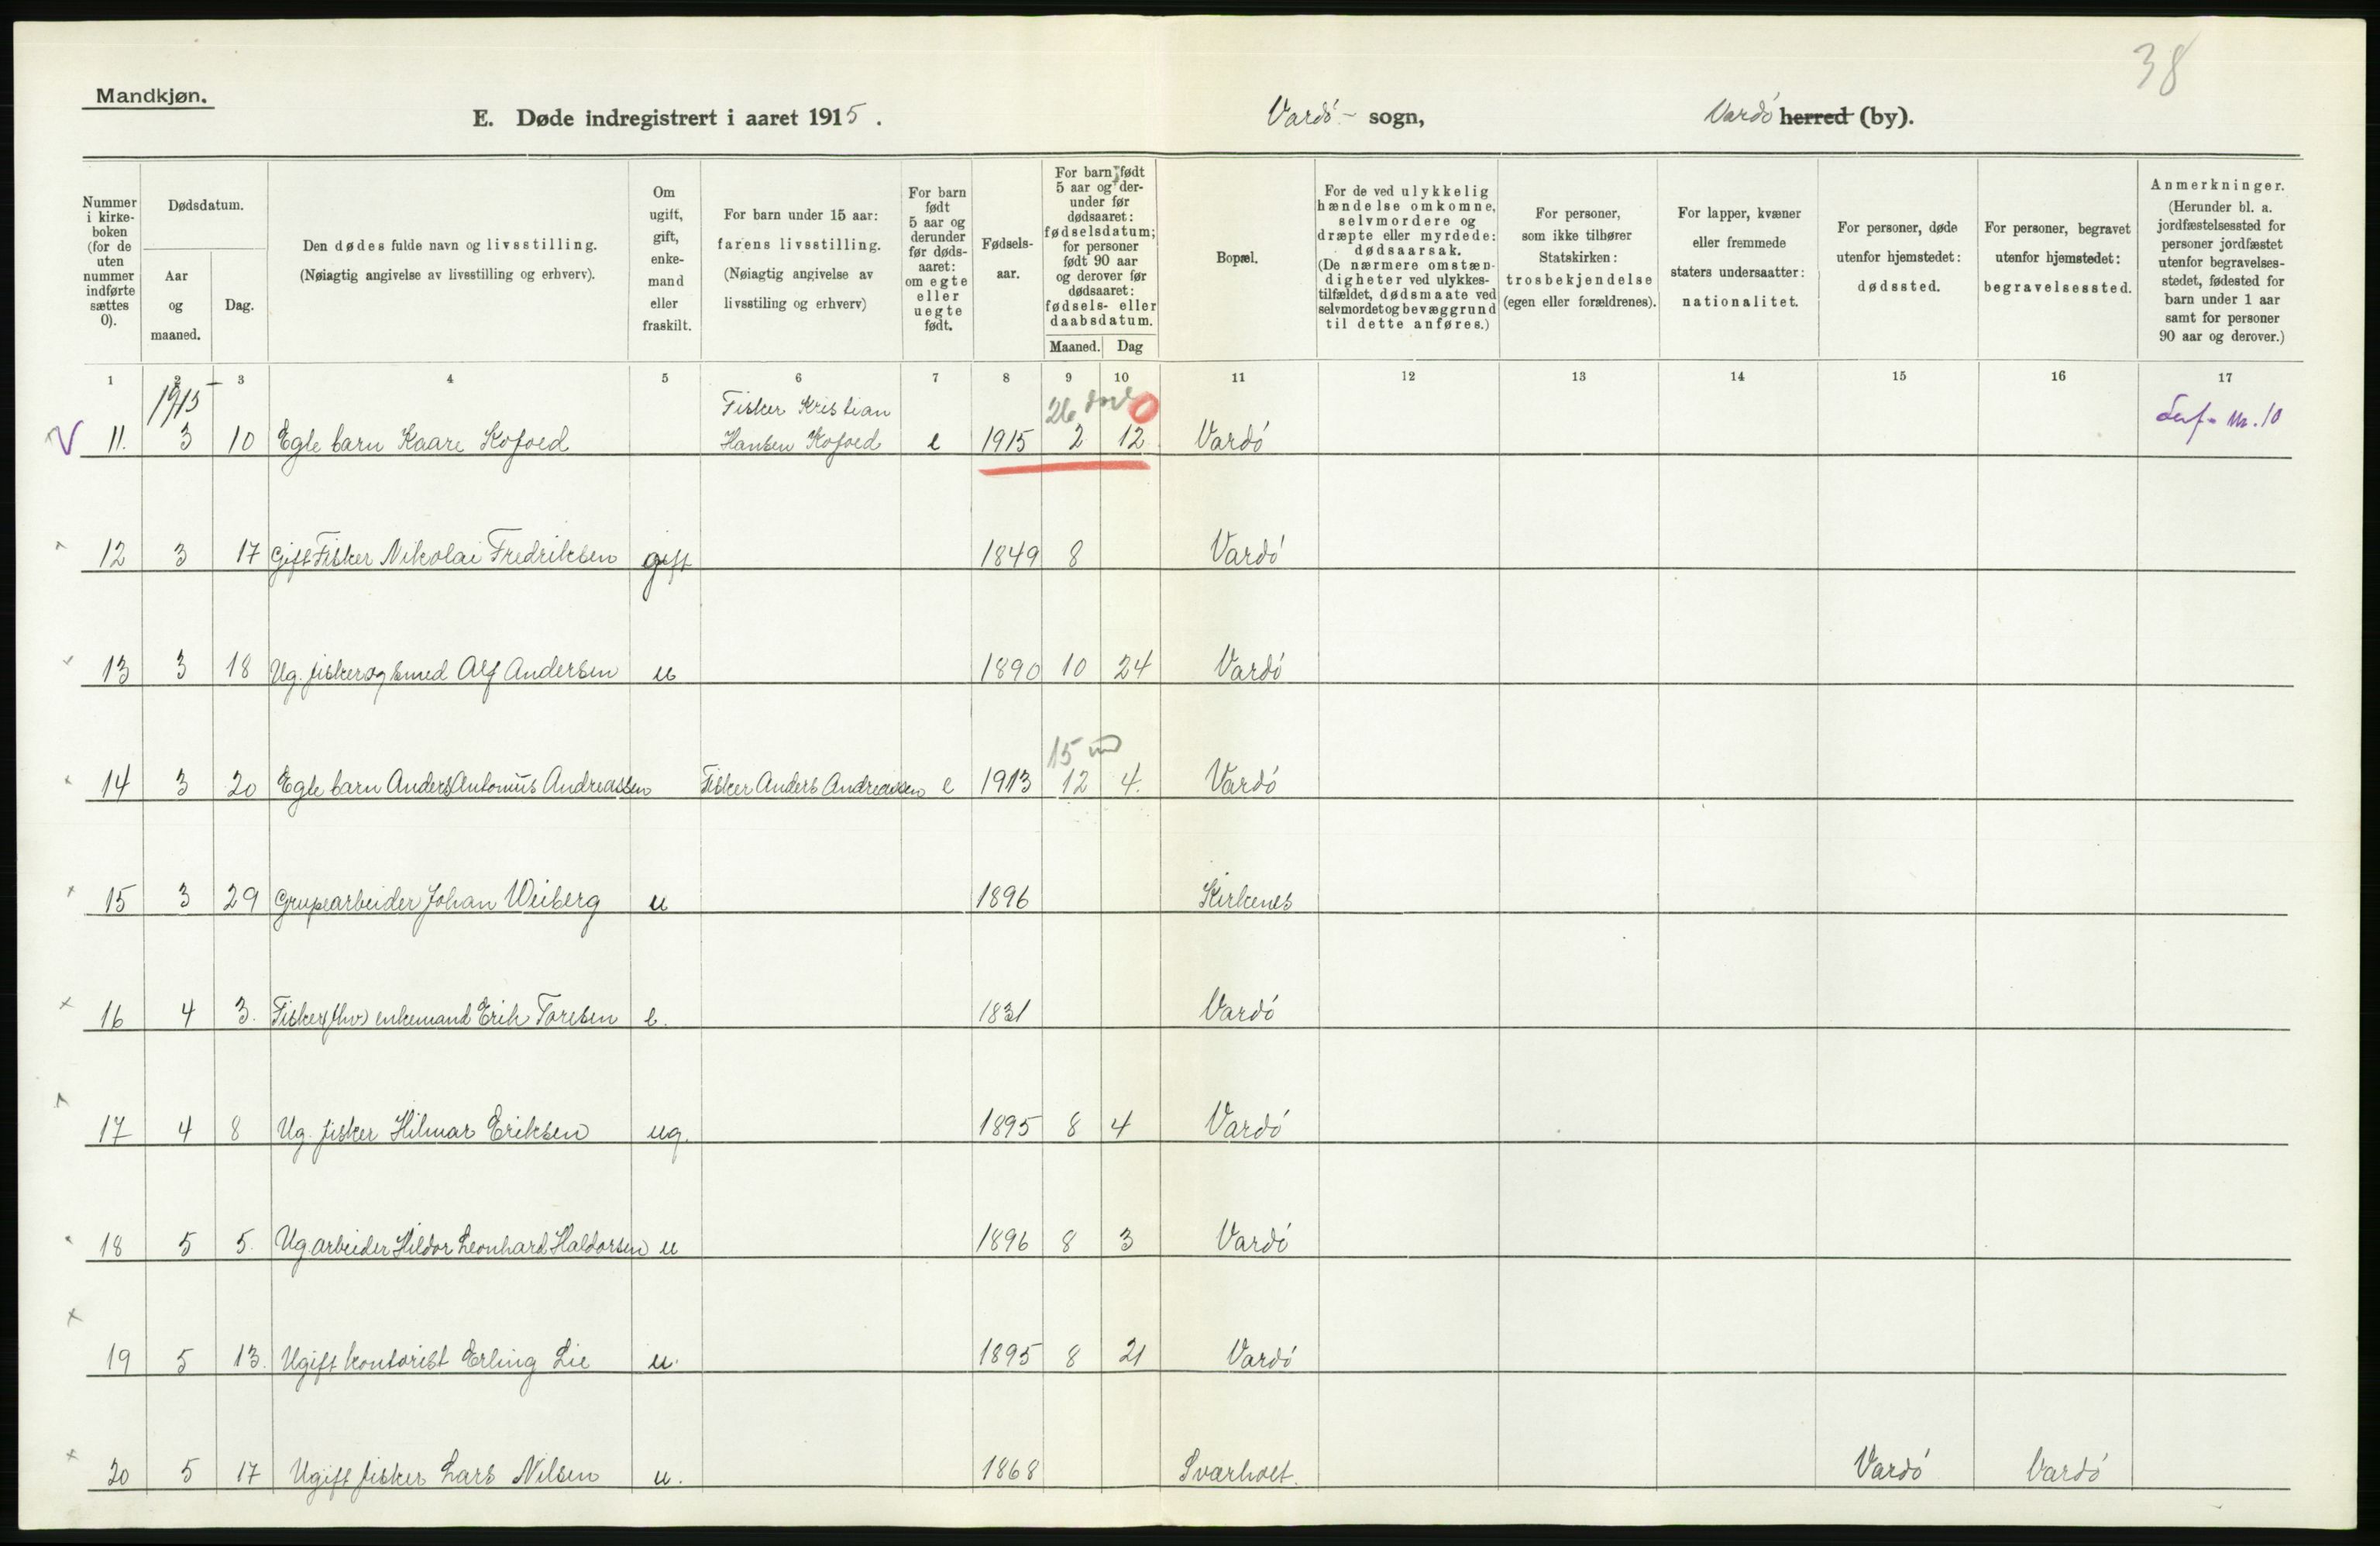 38
Mandkjøn.
E. Døde indregistrert i aaret 1915.
Vardö - sogn,
Vardö herred (by).
Nummer i kirke-boken (for de uten nummer indførte sættes 0).
Dødsdatum.
Aar og maaned.
Dag.
Den dødes fulde navn og livsstilling.
(Nøiagtig angivelse av livsstilling og erhverv).
Om ugift, gift, enke-mand eller fraskilt.
For barn under 15 aar: farens livsstilling.
(Nøiagtig angivelse av livsstiling og erhverv)
For barn født 5 aar og derunder før døds-aaret: om egte eller uegte født.
Fødsels-aar.
For barn født 5 aar og der-under før dødsaaret: fødselsdatum; for personer født 90 aar og derover før dødsaaret: fødsels- eller daabsdatum.
Maaned. Dag
Bopæl.
For de ved ulykkelig hændelse omkomne, selvmordere og dræpte eller myrdede: dødsaarsak.
(De nærmere omstæn-digheter ved ulykkes-tilfældet, dødsmaate ved selvmordet og bevæggrund til dette anføres.)
For personer, som ikke tilhører Statskirken: trosbekjendelse (egen eller forældrenes).
For lapper, kvæner eller fremmede staters undersaatter: nationalitet.
For personer, døde utenfor hjemstedet: dødssted.
For personer, begravet utenfor hjemstedet: begravelsessted.
Anmerkninger.
(Herunder bl. a. jordfæstelsessted for personer jordfæstet utenfor begravelses-stedet, fødested for barn under 1 aar samt for personer 90 aar og derover.)
1 2 3 4 5 6 7 8 9 10 11 12 13 14 15 16 17
1915
Fisker Kristian
26 0
V 11. 3 10 Egte barn Kaare Kofoed Hansen Kofoed e 1915 2 12 Vardö nr. 10
12 3 17 Gift Fisker Nikolai Fredriksen gift 1849 8 Vardö
13 3 18 Ug. fisker og smed Alf Andersen u 1890 10 24 Vardö
15 m
14 3 20 Egte barn Anders Antonius Andreassen Fisker Anders Andreassen e 1913 12 4. Vardö
15 3 29 Grupearbeider Johan Weiberg u 1896 Kirkenes
16 4 3. Fisker (fhv) enkemand Erik Toresen e. 1831 Vardö
17 4 8 Ug. fisker Hilmar Eriksen ug. 1895 8 4 Vardö
18 5 5. Ug arbeider Hildor Leonhard Haldorsen u 1896 8 3 Vardö
19 5 13. Ugift kontorist Erling Lie u. 1895 8 21 Vardö
20 5 17 Ugift fisker Lars Nilsen u. 1868 Sværholt. Vardö Vardö